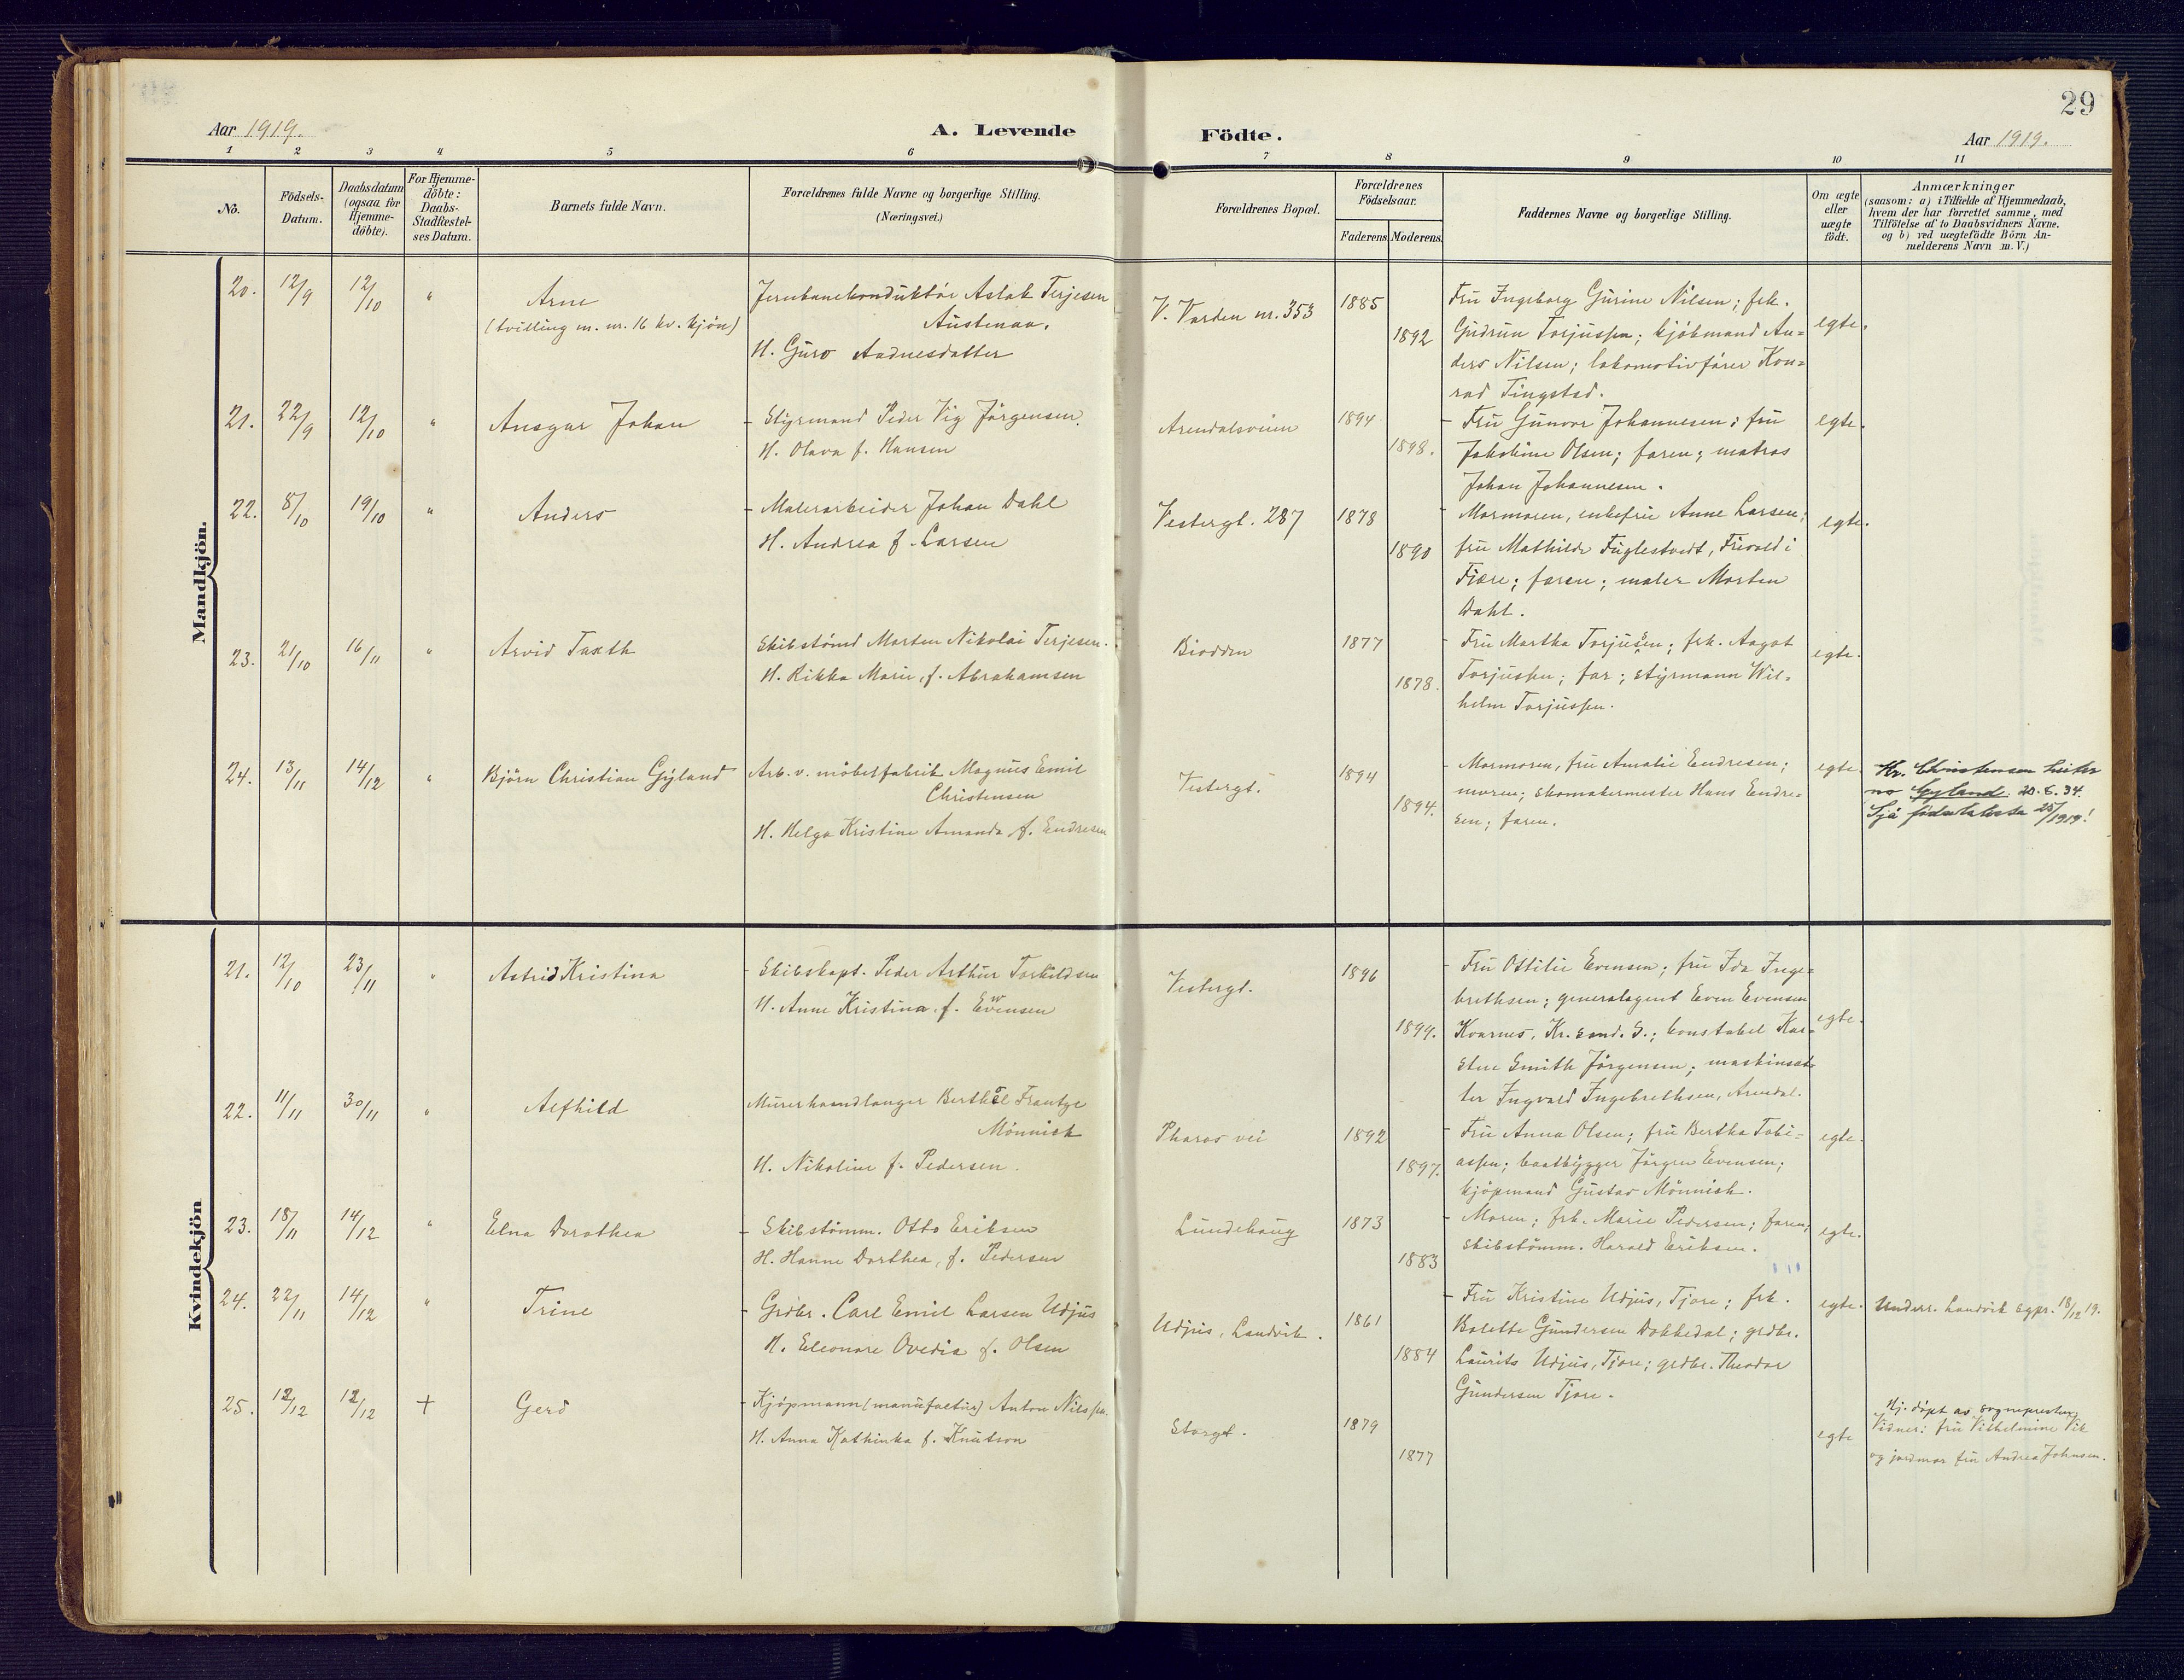 29
Aar 1919.
A. Levende Födte.
Aar 1919.
1 2 3 4 5 6 7 8 9 10 11
No.
Födsels-Datum.
Daabsdatum (ogsaa for Hjemme-döbte).
For Hjemme-döbte: Daabs-Stadfæstel-ses Datum.
Barnets fulde Navn.
Forældrenes fulde Navne og borgerlige Stilling.
(Næringsvei.)
Forældrenes Bopæl.
Forældrenes Födselsaar.
Faderens. Moderens.
Faddernes Navne og borgerlige Stilling.
Om ægte eller uægte födt.
Anmærkninger
(saasom: a) i Tilfælde af Hjemmedaab,
hvem der har forrettet samme, med
Tilföielse af to Daabsvidners Navne,
og b) ved uægtefödte Börn An-
melderens Navn m. V.)
Mandkjön.
20. 12/9 12/10 "
Arne
(tvilling m. nr. 16 kv. kjön)
Jernbanekonduktör Aslak Terjesen
Austenaa.
H. Guro Aadnesdatter
V. Varden nr. 353
1885
1892
Fru Ingeborg Gurine Nilsen; frk.
Gudrun Torjussen; kjöbmand An=
ders Nilsen; lokomotivförer Kon=
rad Tingstad.
egte.
21. 22/9 12/10 "
Ansgar Johan
- Styrmand Peder Vig Jörgensen.
H. Olava f. Hansen
Arendalsveien
1894
1898.
- Fru Gunvor Johannesen; fru
Jakobine Olsen; faren; matros
Johan Johannesen.
egte.
22. 8/10 19/10 "
Anders
- Malerarbeider Johan Dahl
H. Andrea f. Larsen
Vestergt. 287
1878
1890
- Mormoren, enkefru Anne Larsen;
fru Mathilde Fuglestvedt, Frivold i
Fjære; faren; maler Morten
Dahl.
egte.
23. 21/10 16/11 "
Arvid Taxth
Skibstömd Morten Nikolai Terjesen.
H. Rikka Marie, f. Abrahamsen
Biodden
1877
1878.
- Fru Martha Torjusen; frk. Aagot
Torjussen; far; styrmann Wil=
helm Torjussen.
egte.
24. 13/11 14/12 "
Björn Christian Gyland
Arb. v. möbelfabrik Magnus Emil
Christensen
H. Helga Kristine Amanda f. Endresen
Vestergt.
1894
1894.
- Mormoren, fru Amalie Endresen;
moren; skomakermester Hans Endre=
sen; faren.
egte.
Kr. Christensen heiter
no Gyland. 20.6.34.
Sjå födselslista 25/1919!
Kvindekjön
21. 12/10 23/11 "
Astrid Kristina
- Skibskapt. Peder Arthur Torkildsen
H. Anne Kristina f. Evensen
Vestergt.
1896
1894.
- Fru Ottilie Evensen; fru Ida Inge=
brethsen; generalagent Even Evensen
Kvarnes, Kr.sand. S.; konstabel Kar=
sten Smith Jörgensen; maskinset=
ter Ingvald Ingebrethsen, Arendal.
egte.
22. 11/11 30/11 "
Alfhild
Murerhaandlanger Berthel Frantze
Mönnich
H. Nikoline f. Pedersen.
Pharos vei
1892
1897.
- Fru Anna Olsen; fru Bertha Tobi=
assen; baatbygger Jörgen Evensen;
kjöpmand Gustav Mönnich.
egte.
23. 18/11 14/12 "
Elna Dorothea
- Skibstömm. Otto Eriksen
H. Hanne Dorthea, f. Pedersen
Lundehaug
1873
1883
- Moren; frk. Marie Pedersen; faren;
skibstömm. Harald Eriksen.
egte.
24. 22/11 14/12 "
Trine
- Grdbr. Carl Emil Larsen Udjus
H. Eleonore Ovedia f. Olsen
Udjus, Landvik.
1861
1884
- Fru Kristine Udjus, Tjore; frk.
Bolette Gundersen Dokkedal; grdbr.
Laurits Udjus, Tjore; grdbr. Theodor
Gundersen Tjore.
egte.
Underr. Landvik sgpr. 18/12 19.
25. 12/12 12/12 +
Gerd
- Kjöpmann (manufactur) Anton Nilssen.
H. Anna Kathinka f. Knutson
Storgt.
1879
1877
egte
Hj. döpt av sognepresten
Vidner: fru Vilhelmine Vik
og jordmor fru Andrea Johnsen.